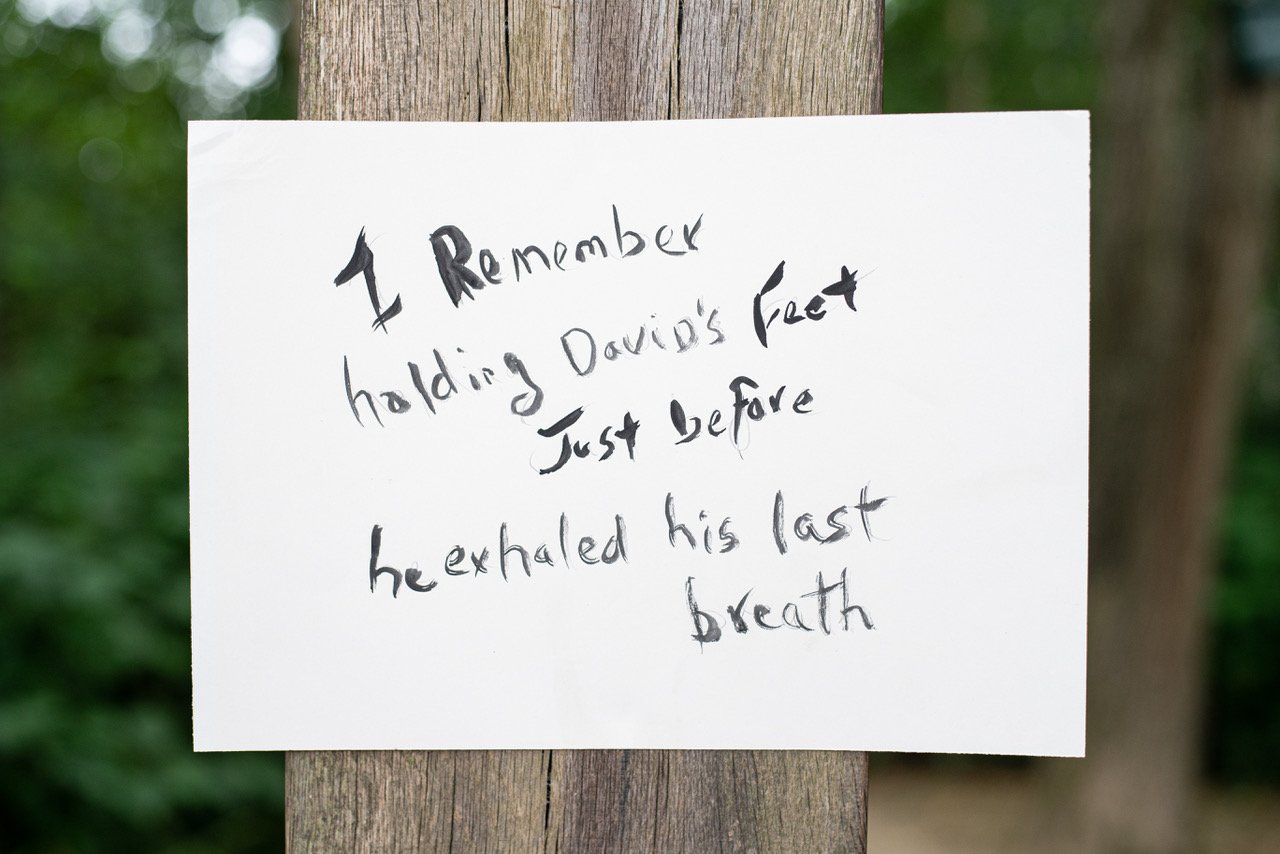 I Remember
holding David's Feet
Just before
he exhaled his last
breath